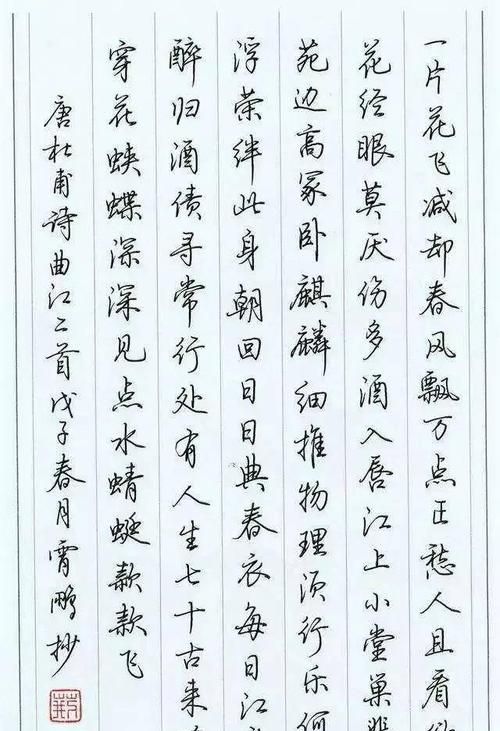 一片花飞减却春风飘万点正愁人且看欲
花经眼莫厌伤多酒入唇江上小堂巢翡
苑边高冢卧麒麟细推物理须行乐何
浮荣绊此身朝回日日典春衣每日江
醉归酒债寻常行处有人生七十古来
穿花蛱蝶深深见点水蜻蜓款款飞
唐杜甫詩曲江二首戊子春月霄鹏抄